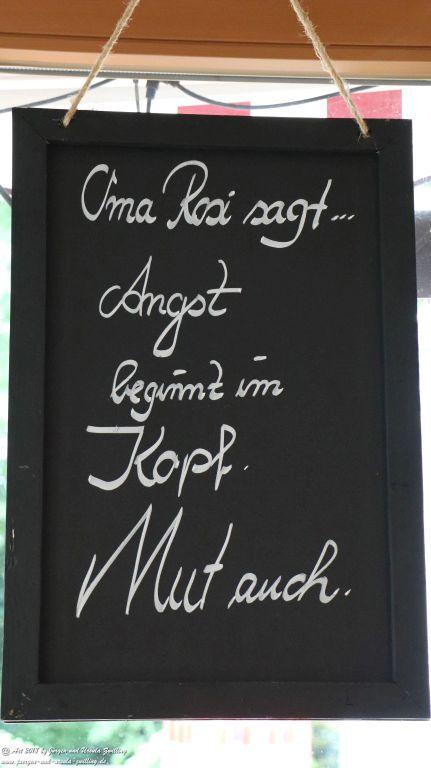 Oma Rosi sagt...
Angst
beginnt im
Kopf.
Mut auch.
© Art 2018 by Jürgen und Ursula Zwilling
www.juergen-und-ursula-zwilling.de